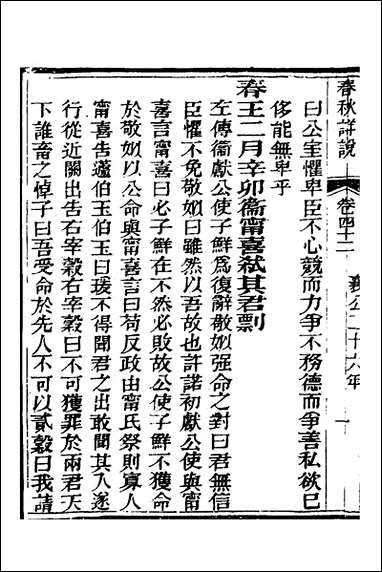 春秋詳說　卷四十二　襄公二十六年　一
曰公室懼卑臣不心競而力爭不務德而爭善私欲已
侈能無卑乎
春王二月辛卯衞甯喜弒其君剽
左傳衞獻公使子鮮爲復辭敬姒强命之對曰君無信
臣懼不免敬姒曰雖然以吾故也許諾初獻公使與甯
喜言甯喜曰必子鮮在不然必敗故公使子鮮不獲命
於敬姒以公命與甯喜言曰苟反政由甯氏祭則寡人
甯喜告蘧伯玉伯玉曰瑗不得聞君之出敢聞其入遂
行從近關出告右宰穀右宰穀曰不可獲罪於兩君天
下誰畜之悼子曰吾受命於先人不可以貳穀曰我請